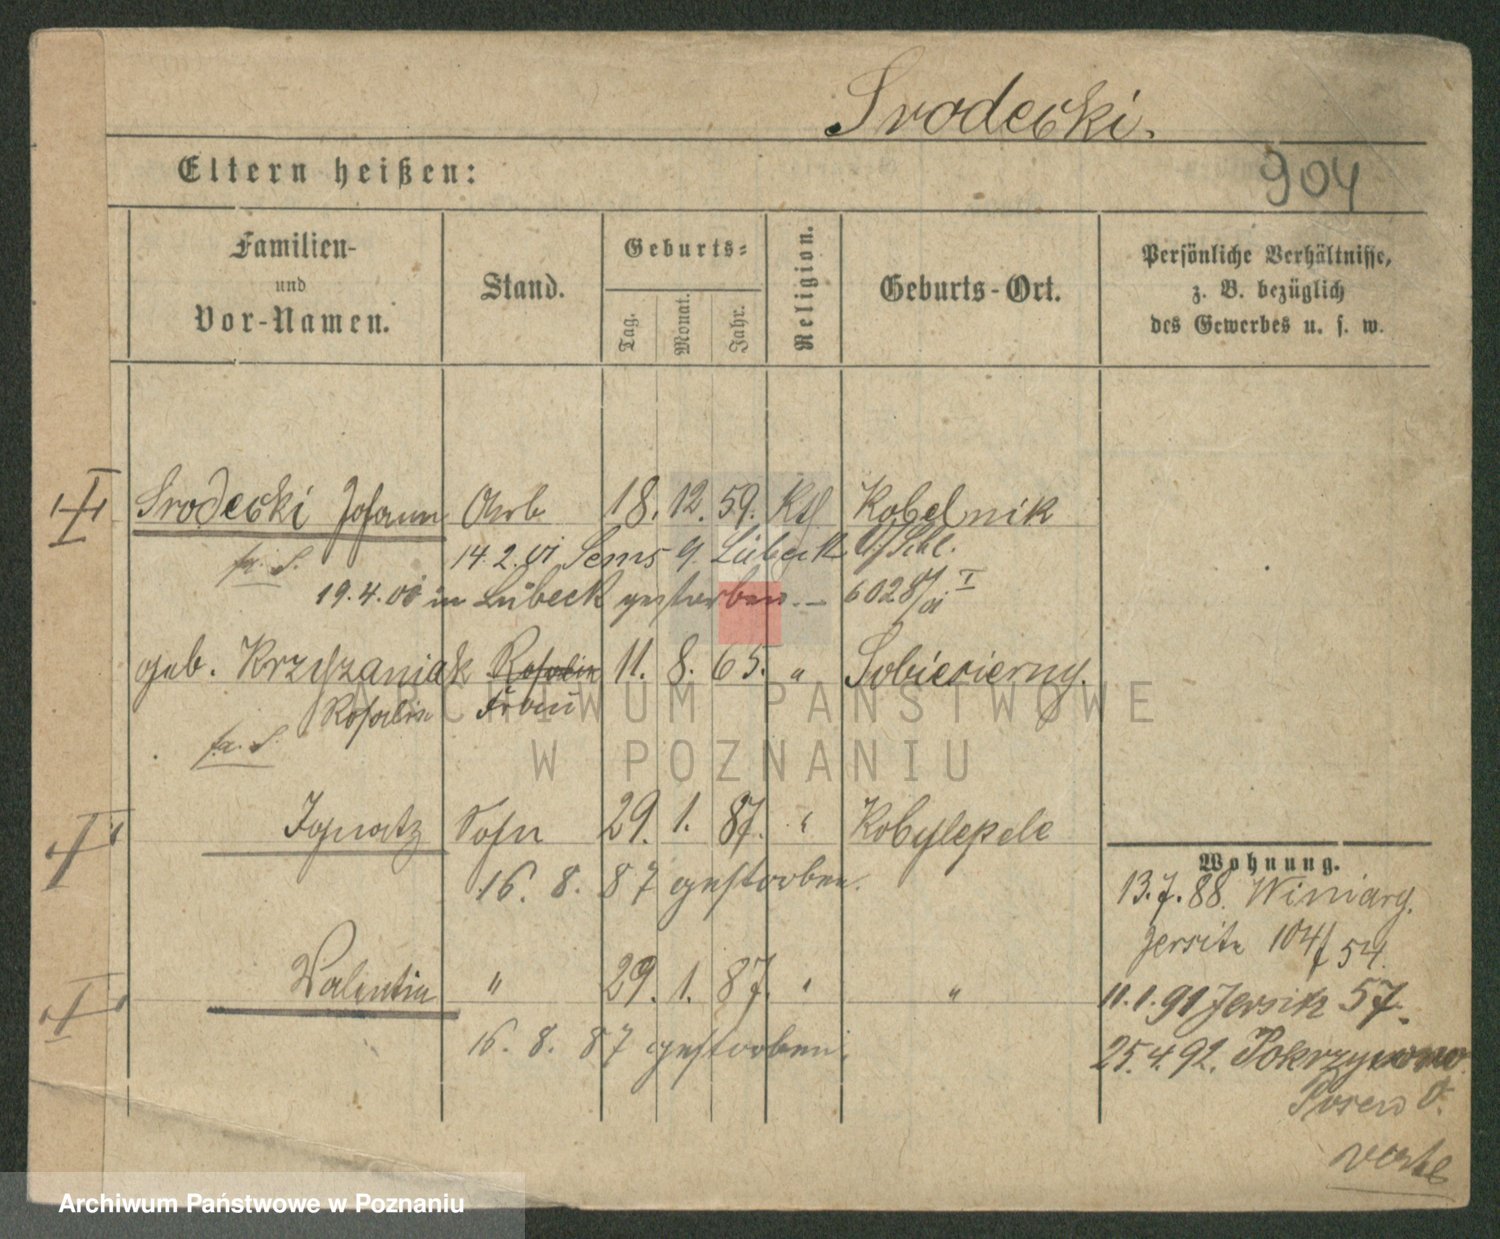 Srodecki.
Eltern heißen:
904
Familien-
und
Vor-Namen.
Stand.
Geburts-
Tag.
Monat.
Jahr.
Religion.
Geburts-Ort.
Persönliche Verhältnisse,
z. B. bezüglich
des Gewerbes u. s. w.
Srodecki Johann Arb 18. 12. 59. Kth Kobelnik
fr. S. 14. 2. 01 Lübeck
19. 4. 00 in Lübeck gestorben. — 6028/01 I
geb. Krzyszaniak Rosalie 11. 8. 65. " Sobiesierny.
Rosalie Frau
fr. S.
Ignatz Sohn 29. 1. 87. " Kobylepole
16. 8. 87 gestorben.
Valentin " 29. 1. 87. " "
16. 8. 87 gestorben.
Wohnung.
13. 7. 88. Winiary.
Jersitz 104/54.
11. 1. 91 Jersitz 57.
25. 4. 92. Pokrzywno
Posen O.
verte
ARCHIWUM PAŃSTWOWE
W POZNANIU
Archiwum Państwowe w Poznaniu